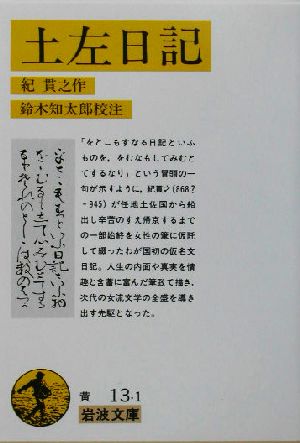 土左日記
紀 貫之作
鈴木知太郎校注
「をとこもすなる日記といふ
ものを，をむなもしてみむと
てするなり」という冒頭の一
句が示すように，紀貫之(868?
-945)が任地土佐国から船出
し辛苦のすえ帰京するまで
の一部始終を女性の筆に仮託
して綴ったわが国初の仮名文
日記．人生の内面や真実を情
趣と含蓄に富んだ筆致で描き，
次代の女流文学の全盛を導き
出す先駆となった．
黄 13-1
岩波文庫